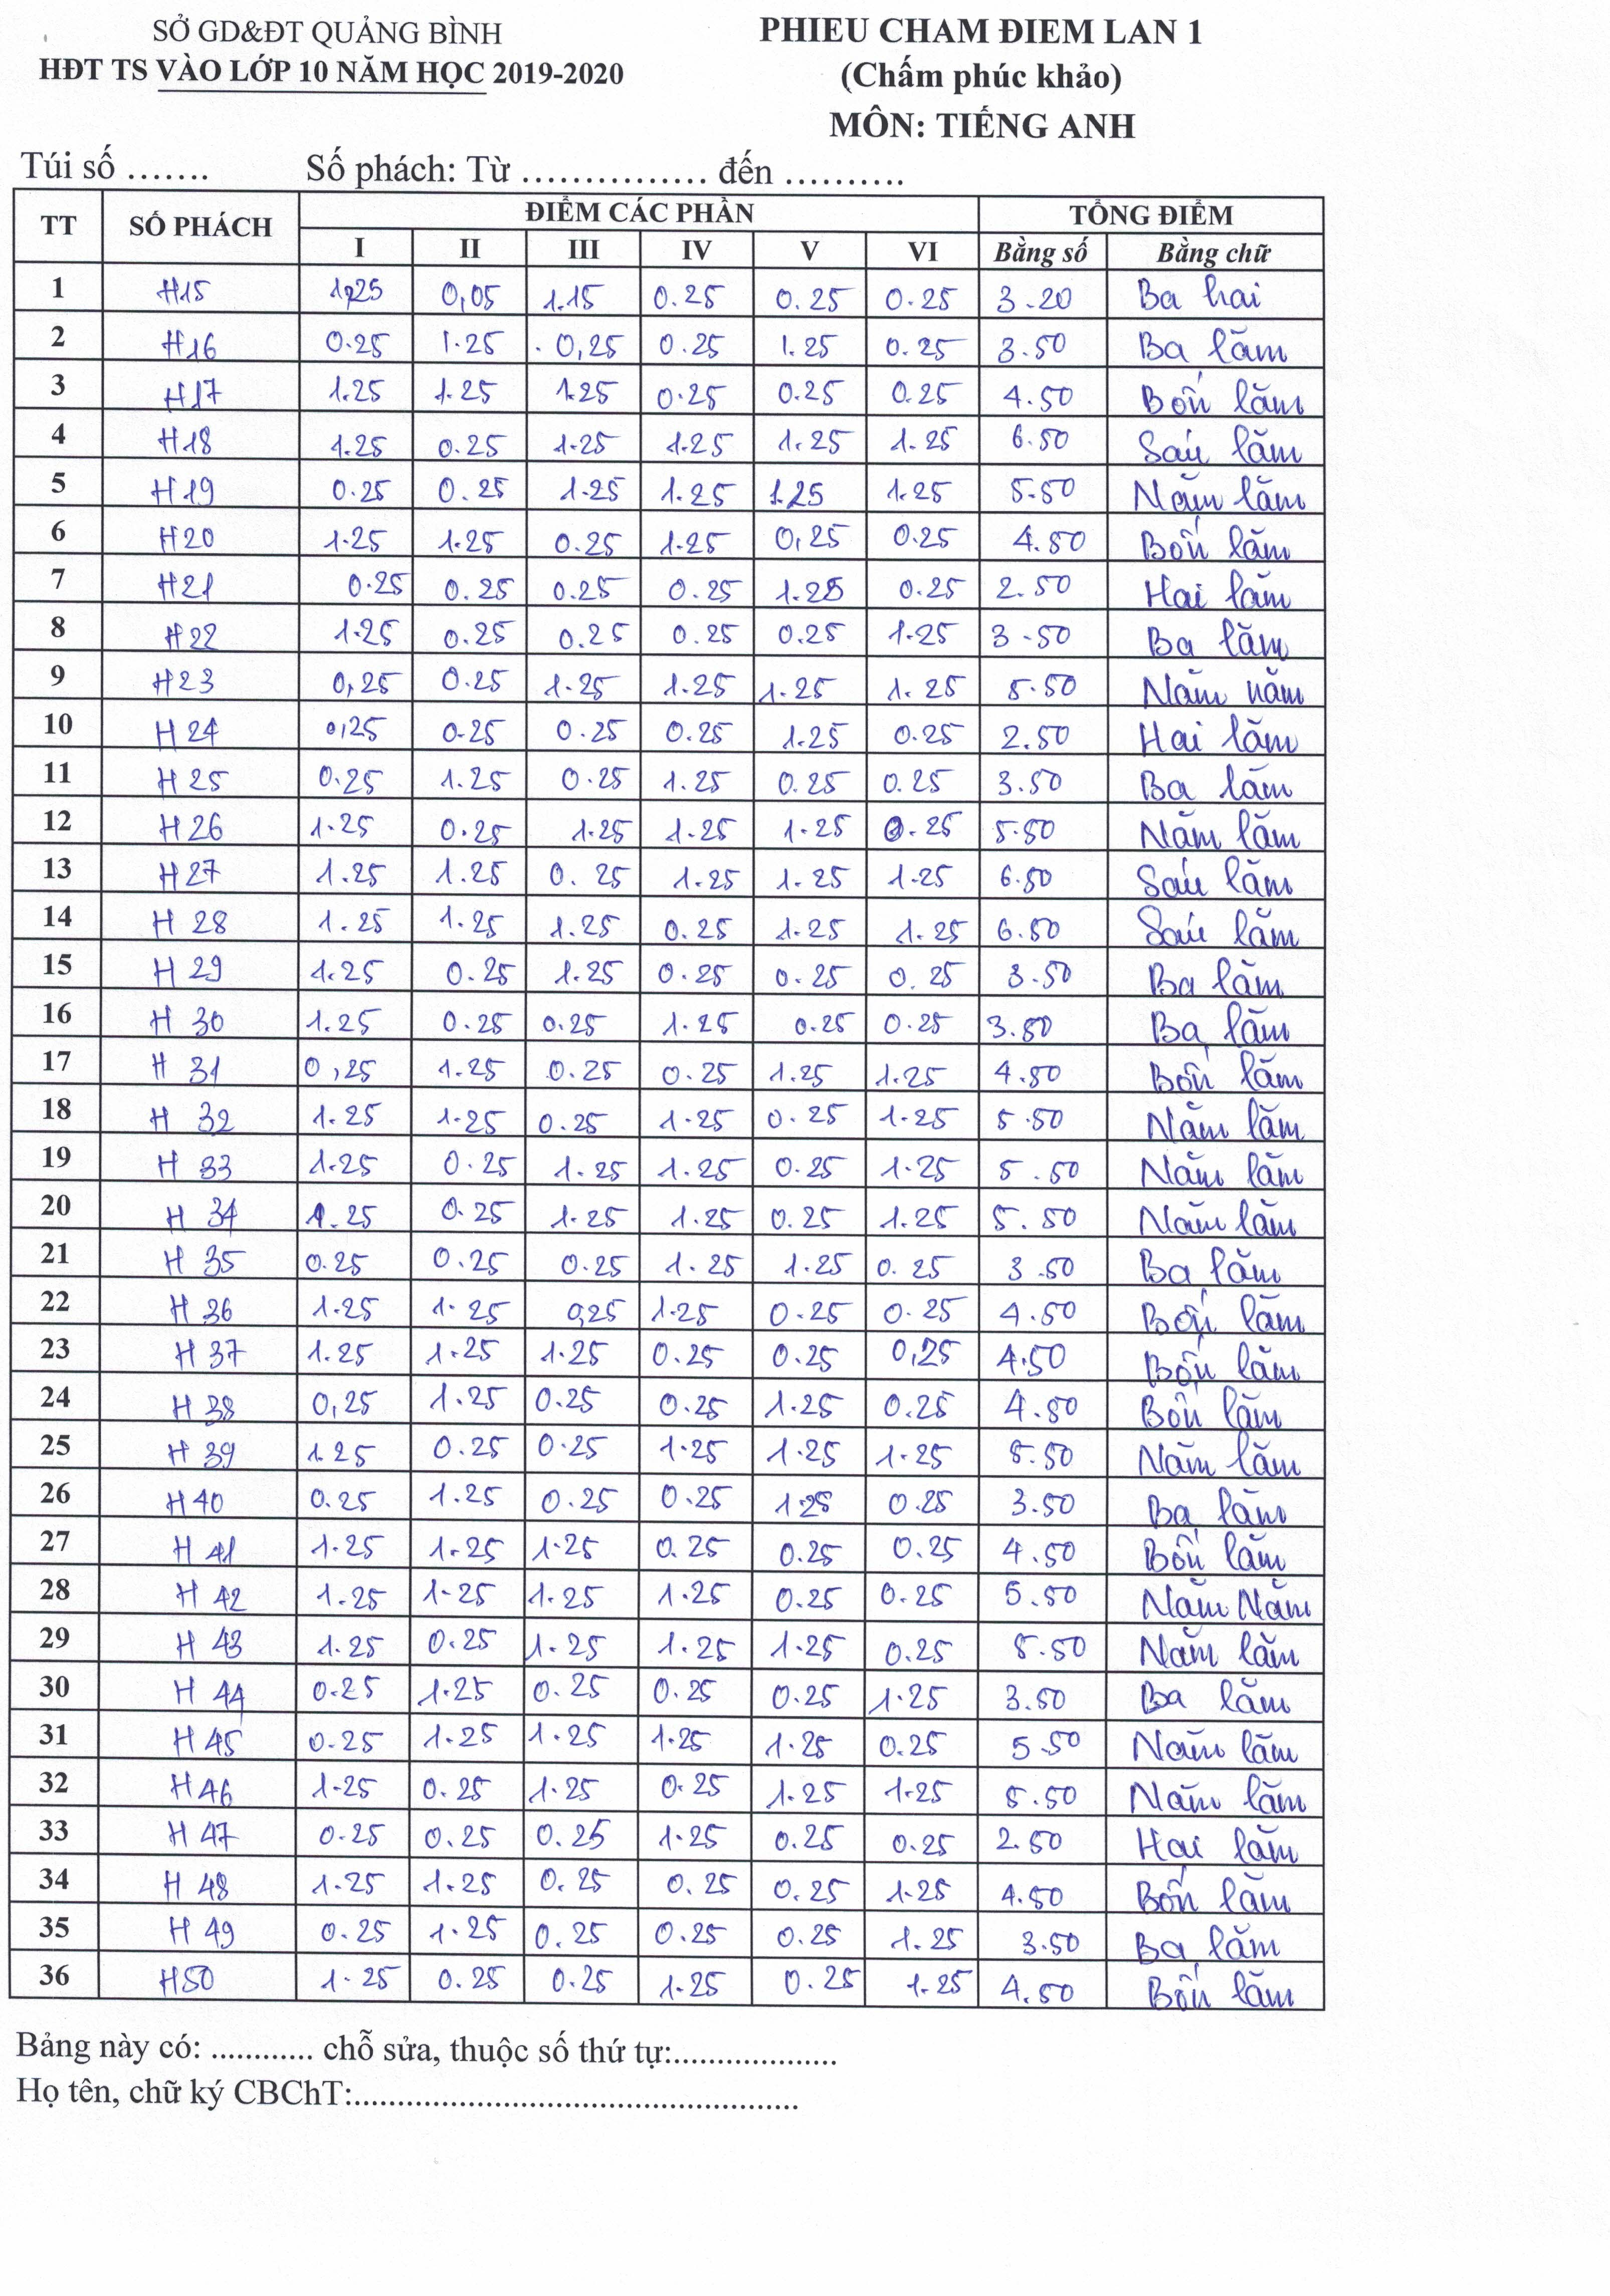 SỞ GD&ĐT QUẢNG BÌNH
HĐT TS VÀO LỚP 10 NĂM HỌC 2019-2020
PHIEU CHAM ĐIEM LAN 1
(Chấm phúc khảo)
MÔN: TIẾNG ANH
Túi số ....... Số phách: Từ ............... đến ..........
TT SỐ PHÁCH ĐIỂM CÁC PHẦN TỔNG ĐIỂM
I II III IV V VI Bằng số Bằng chữ
1 H15 1,25 0,05 1.15 0.25 0.25 0.25 3.20 Ba hai
2 H16 0.25 1.25 0,25 0.25 1.25 0.25 3.50 Ba lăm
3 H17 1.25 1.25 1.25 0.25 0.25 0.25 4.50 Bốn lăm
4 H18 1.25 0.25 1.25 1.25 1.25 1.25 6.50 Sáu lăm
5 H19 0.25 0.25 1.25 1.25 1.25 1.25 5.50 Năm lăm
6 H20 1.25 1.25 0.25 1.25 0,25 0.25 4.50 Bốn lăm
7 H21 0.25 0.25 0.25 0.25 1.25 0.25 2.50 Hai lăm
8 H22 1.25 0.25 0.25 0.25 0.25 1.25 3.50 Ba lăm
9 H23 0,25 0.25 1.25 1.25 1.25 1.25 5.50 Năm năm
10 H24 0,25 0.25 0.25 0.25 1.25 0.25 2.50 Hai lăm
11 H25 0.25 1.25 0.25 1.25 0.25 0.25 3.50 Ba lăm
12 H26 1.25 0.25 1.25 1.25 1.25 0.25 5.50 Năm lăm
13 H27 1.25 1.25 0.25 1.25 1.25 1.25 6.50 Sáu lăm
14 H28 1.25 1.25 1.25 0.25 1.25 1.25 6.50 Sáu lăm
15 H29 1.25 0.25 1.25 0.25 0.25 0.25 3.50 Ba lăm
16 H30 1.25 0.25 0.25 1.25 0.25 0.25 3.50 Ba lăm
17 H31 0,25 1.25 0.25 0.25 1.25 1.25 4.50 Bốn lăm
18 H32 1.25 1.25 0.25 1.25 0.25 1.25 5.50 Năm lăm
19 H33 1.25 0.25 1.25 1.25 0.25 1.25 5.50 Năm lăm
20 H34 1.25 0.25 1.25 1.25 0.25 1.25 5.50 Năm lăm
21 H35 0.25 0.25 0.25 1.25 1.25 0.25 3.50 Ba lăm
22 H36 1.25 1.25 0,25 1.25 0.25 0.25 4.50 Bốn lăm
23 H37 1.25 1.25 1.25 0.25 0.25 0,25 4.50 Bốn lăm
24 H38 0,25 1.25 0.25 0.25 1.25 0.25 4.50 Bốn lăm
25 H39 1.25 0.25 0.25 1.25 1.25 1.25 5.50 Năm lăm
26 H40 0.25 1.25 0.25 0.25 1.25 0.25 3.50 Ba lăm
27 H41 1.25 1.25 1.25 0.25 0.25 0.25 4.50 Bốn lăm
28 H42 1.25 1.25 1.25 1.25 0.25 0.25 5.50 Năm Năm
29 H43 1.25 0.25 1.25 1.25 1.25 0.25 5.50 Năm lăm
30 H44 0.25 1.25 0.25 0.25 0.25 1.25 3.50 Ba lăm
31 H45 0.25 1.25 1.25 1.25 1.25 0.25 5.50 Năm lăm
32 H46 1.25 0.25 1.25 0.25 1.25 1.25 5.50 Năm lăm
33 H47 0.25 0.25 0.25 1.25 0.25 0.25 2.50 Hai lăm
34 H48 1.25 1.25 0.25 0.25 0.25 1.25 4.50 Bốn lăm
35 H49 0.25 1.25 0.25 0.25 0.25 1.25 3.50 Ba lăm
36 H50 1.25 0.25 0.25 1.25 0.25 1.25 4.50 Bốn lăm
Bảng này có: ............ chỗ sửa, thuộc số thứ tự:...................
Họ tên, chữ ký CBChT:....................................................